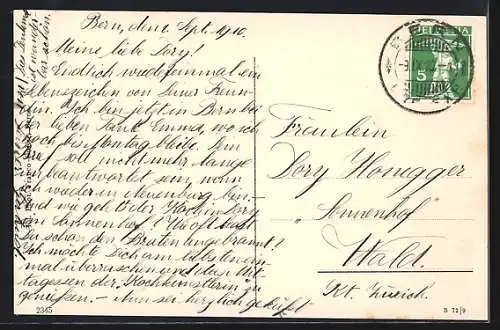 Bern, dem Sept. 1910.
Meine liebe Dory!
Endlich wieder einmal ein
Lebenszeichen von Deiner Freun-
din. Ich bin jetzt in Bern bei
der lieben Tante Emma, wo ich
noch bis Montag bleibe. Dein
Brief soll nicht mehr lange
unbeantwortet sein, wenn
ich wieder in Neuenburg bin.
Und wie geht's der Köchin Dory
im Sonnenhof? Wie oft hast
Du schon den Braten angebrannt?
Ich möchte Dich am liebsten ein-
mal überraschen und das Mit-
tagessen der Kochkünstlerin zu
genießen. - Nun sei herzlich geküßt
HELVETIA
5
BERN
Fräulein
Dory Honegger
"Sonnenhof"
Wald.
Kt. Zürich.
2345
B 72/9